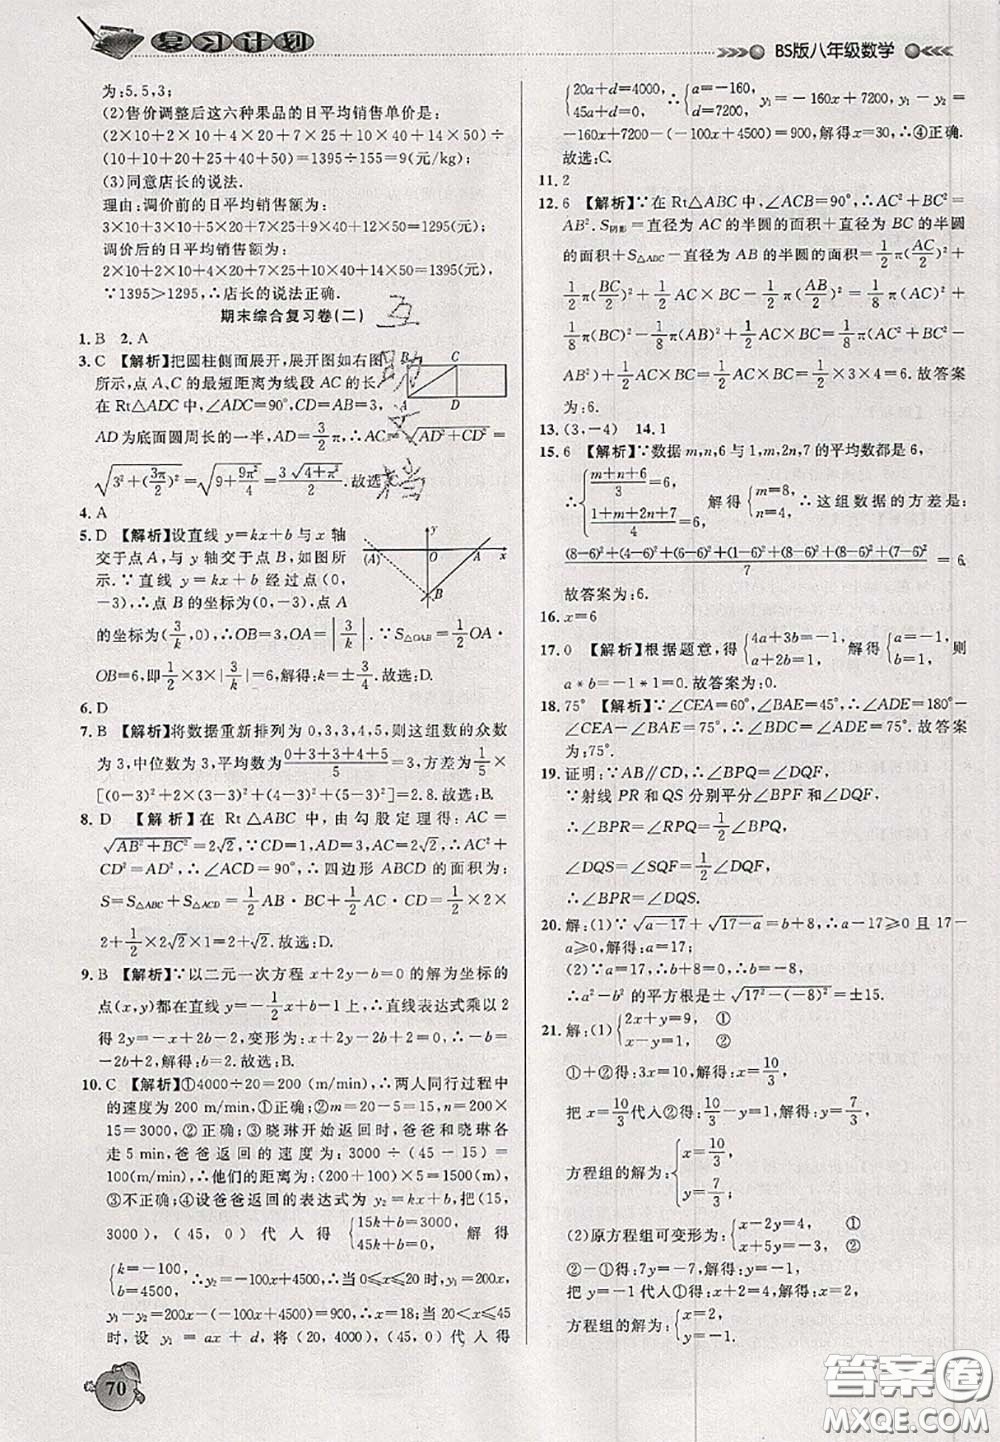 复习计划
BS版八年级数学
为:5.5,3;
(2)售价调整后这六种果品的日平均销售单价是:
(2×10+2×10+4×20+7×25+10×40+14×50)÷
(10+10+20+25+40+50)=1395÷155=9(元/kg)
(3)同意店长的说法.
理由:调价前的日平均销售额为:
3×10+3×10+5×20+7×25+9×40+12×50=1295(元)
调价后的日平均销售额为:
2×10+2×10+4×20+7×25+10×40+14×50=1395(元),
∵1395>1295,∴店长的说法正确.
期末综合复习卷(二)
1. B 2. A
3. C 【解析】把圆柱侧面展开,展开图如右图
所示,点 A、C 的最短距离为线段 AC 的长.
在 Rt△ADC 中,∠ADC=90°,CD=AB=3,
AD 为底面圆周长的一半,AD=3/2π,∴AC=√(AD²+CD²)=
√(3²+(3π/2)²)=√(9+9π²/4)=3√(4+π²)/2.故选:C.
B C
A D
4. A
5. D 【解析】设直线 y=kx+b 与 x 轴
交于点 A,与 y 轴交于点 B,如图所
示.∵直线 y=kx+b 经过点(0,
-3),∴点 B 的坐标为(0,-3),点 A
的坐标为(3/k,0),∴OB=3,OA=|3/k|.∵S△OAB=1/2OA·
OB=6,即1/2×3×|3/k|=6,解得:k=±3/4.故选:D.
y
(A) O A x
B
6. D
7. B 【解析】将数据重新排列为 0,3,3,4,5,则这组数的众数
为 3,中位数为 3,平均数为(0+3+3+4+5)/5=3,方差为1/5×
[(0-3)²+2×(3-3)²+(4-3)²+(5-3)²]=2.8.故选:B.
8. D 【解析】在 Rt△ABC 中,由勾股定理得:AC=
√(AB²+BC²)=2√2.∵CD=1,AD=3,AC=2√2,∴AC²
+CD²=AD²,∴∠ACD=90°,∴四边形 ABCD 的面积为:
S=S△ABC+S△ACD=1/2AB·BC+1/2AC·CD=1/2×2×
2+1/2×2√2×1=2+√2.故选:D.
9. B 【解析】∵以二元一次方程 x+2y-b=0 的解为坐标的
点(x,y)都在直线 y=-1/2x+b-1 上,∴直线表达式乘以 2
得 2y=-x+2b-2,变形为:x+2y-2b+2=0,∴-b=
-2b+2,解得:b=2.故选:B.
10. C 【解析】①4000÷20=200 (m/min),∴两人同行过程中
的速度为 200 m/min,①正确;②m=20-5=15,n=200
×15=3000,②正确;③晓琳开始返回时,爸爸和晓琳各
走 5 min,爸爸返回的速度为:3000÷(45-15)=
100(m/min),∴他们的距离为:(200+100)×5=1500(m),
③不正确;④设爸爸返回的表达式为 y₂=kx+b,把(15,
3000),(45,0)代入得{15k+b=3000, 45k+b=0, 解得
{k=-100, b=4500, ∴y₂=-100x+4500,∴当 0≤x≤20 时,y₁=200x,
y₁-y₂=200x-(-100x+4500)=900,∴x=18;当 20<x≤45
时,设 y₁=ax+d,将(20,4000),(45,0)代入得
{20a+d=4000, 45a+d=0, ∴{a=-160, d=7200, y₁=-160x+7200,y₁-y₂=
-160x+7200-(-100x+4500)=900,解得x=30,∴④正确.
故选:C.
11. 2
12. 6 【解析】在 Rt△ABC 中,∠ACB=90°,∴AC²+BC²=
AB².S阴影=直径为 AC 的半圆的面积+直径为 BC 的半圆
的面积+S△ADC-直径为 AB 的半圆的面积=1/2π(AC/2)²+
1/2π(BC/2)²+S△ADC-1/2π(AB/2)²=1/8π(AC)²+
1/8π(BC)²-1/8π(AB)²+S△ADC=1/8π(AC²+BC²-
AB²)+1/2AC×BC=1/2AC×BC=1/2×3×4=6.故答案
为:6.
13. (3,-4) 14. 1
15. 6 【解析】∵数据 m,n,6 与 1,m,2n,7 的平均数都是 6,
∴{(m+n+6)/3=6, (1+m+2n+7)/4=6, 解得{m=8, n=4, ∴这组数据的方差是:
((8-6)²+(4-6)²+(6-6)²+(1-6)²+(8-6)²+(8-6)²+(7-6)²)/7=6.
故答案为:6.
16. x=6
17. 0 【解析】根据题意,得{4a+3b=-1, a+2b=1, 解得{a=-1, b=1, 则
a*b=-1*1=0.故答案为:0.
18. 75° 【解析】∵∠CEA=60°,∠BAE=45°,∴∠ADE=180°
-∠CEA-∠BAE=75°,∴∠BDC=∠ADE=75°.故答案
为:75°.
19. 证明:∵AB∥CD,∴∠BPQ=∠DQF,
∵射线 PR 和 QS 分别平分∠BPF 和∠DQF,
∴∠BPR=∠RPQ=1/2∠BPQ,
∠DQS=∠SQF=1/2∠DQF,
∴∠BPR=∠DQS.
20. 解:(1)∵√(a-17)+√(17-a)=b+8,∴a-17≥0 且 17-
a≥0,解得:a=17;
(2)∵a=17,∴b+8=0,∴b=-8,
∴a²-b² 的平方根是±√(17²-(-8)²)=±15.
21. 解:(1){2x+y=9, ① x-y=1, ②
①+②得:3x=10,解得:x=10/3,
把 x=10/3代入②得:10/3-y=1,解得:y=7/3,
方程组的解为:{x=10/3, y=7/3;
(2)原方程组可变形为:{x-2y=4, ① x+5y=-3, ②
②-①得:7y=-7,解得:y=-1,
把 y=-1 代入①得:x+2=4,解得:x=2,
方程组的解为:{x=2, y=-1.
70
答案卷
MXQE.COM